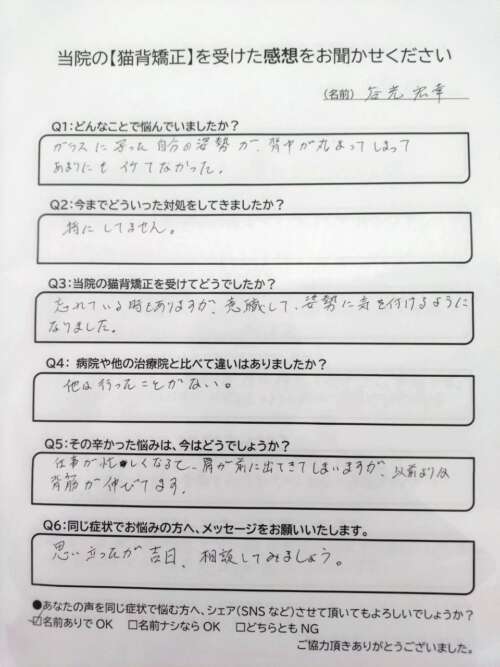 当院の【猫背矯正】を受けた感想をお聞かせください
(名前) 宏幸
Q1:どんなことで悩んでいましたか?
ガラスに写った自分の姿勢が、背中が丸まってしまって
あまりにもイケてなかった。
Q2:今までどういった対処をしてきましたか?
特にしてません。
Q3:当院の猫背矯正を受けてどうでしたか?
忘れている時もありますが、意識して、姿勢に気を付けるように
なりました。
Q4: 病院や他の治療院と比べて違いはありましたか?
他は行ったことがない。
Q5:その辛かった悩みは、今はどうでしょうか?
仕事が忙しくなると、肩が前に出てきてしまいますが、以前よりは
背筋が伸びてます。
Q6:同じ症状でお悩みの方へ、メッセージをお願いいたします。
思い立ったが吉日、相談してみましょう。
●あなたの声を同じ症状で悩む方へ、シェア(SNSなど)させて頂いてもよろしいでしょうか?
☑名前ありでOK □名前ナシならOK □どちらともNG
ご協力頂きありがとうございました。